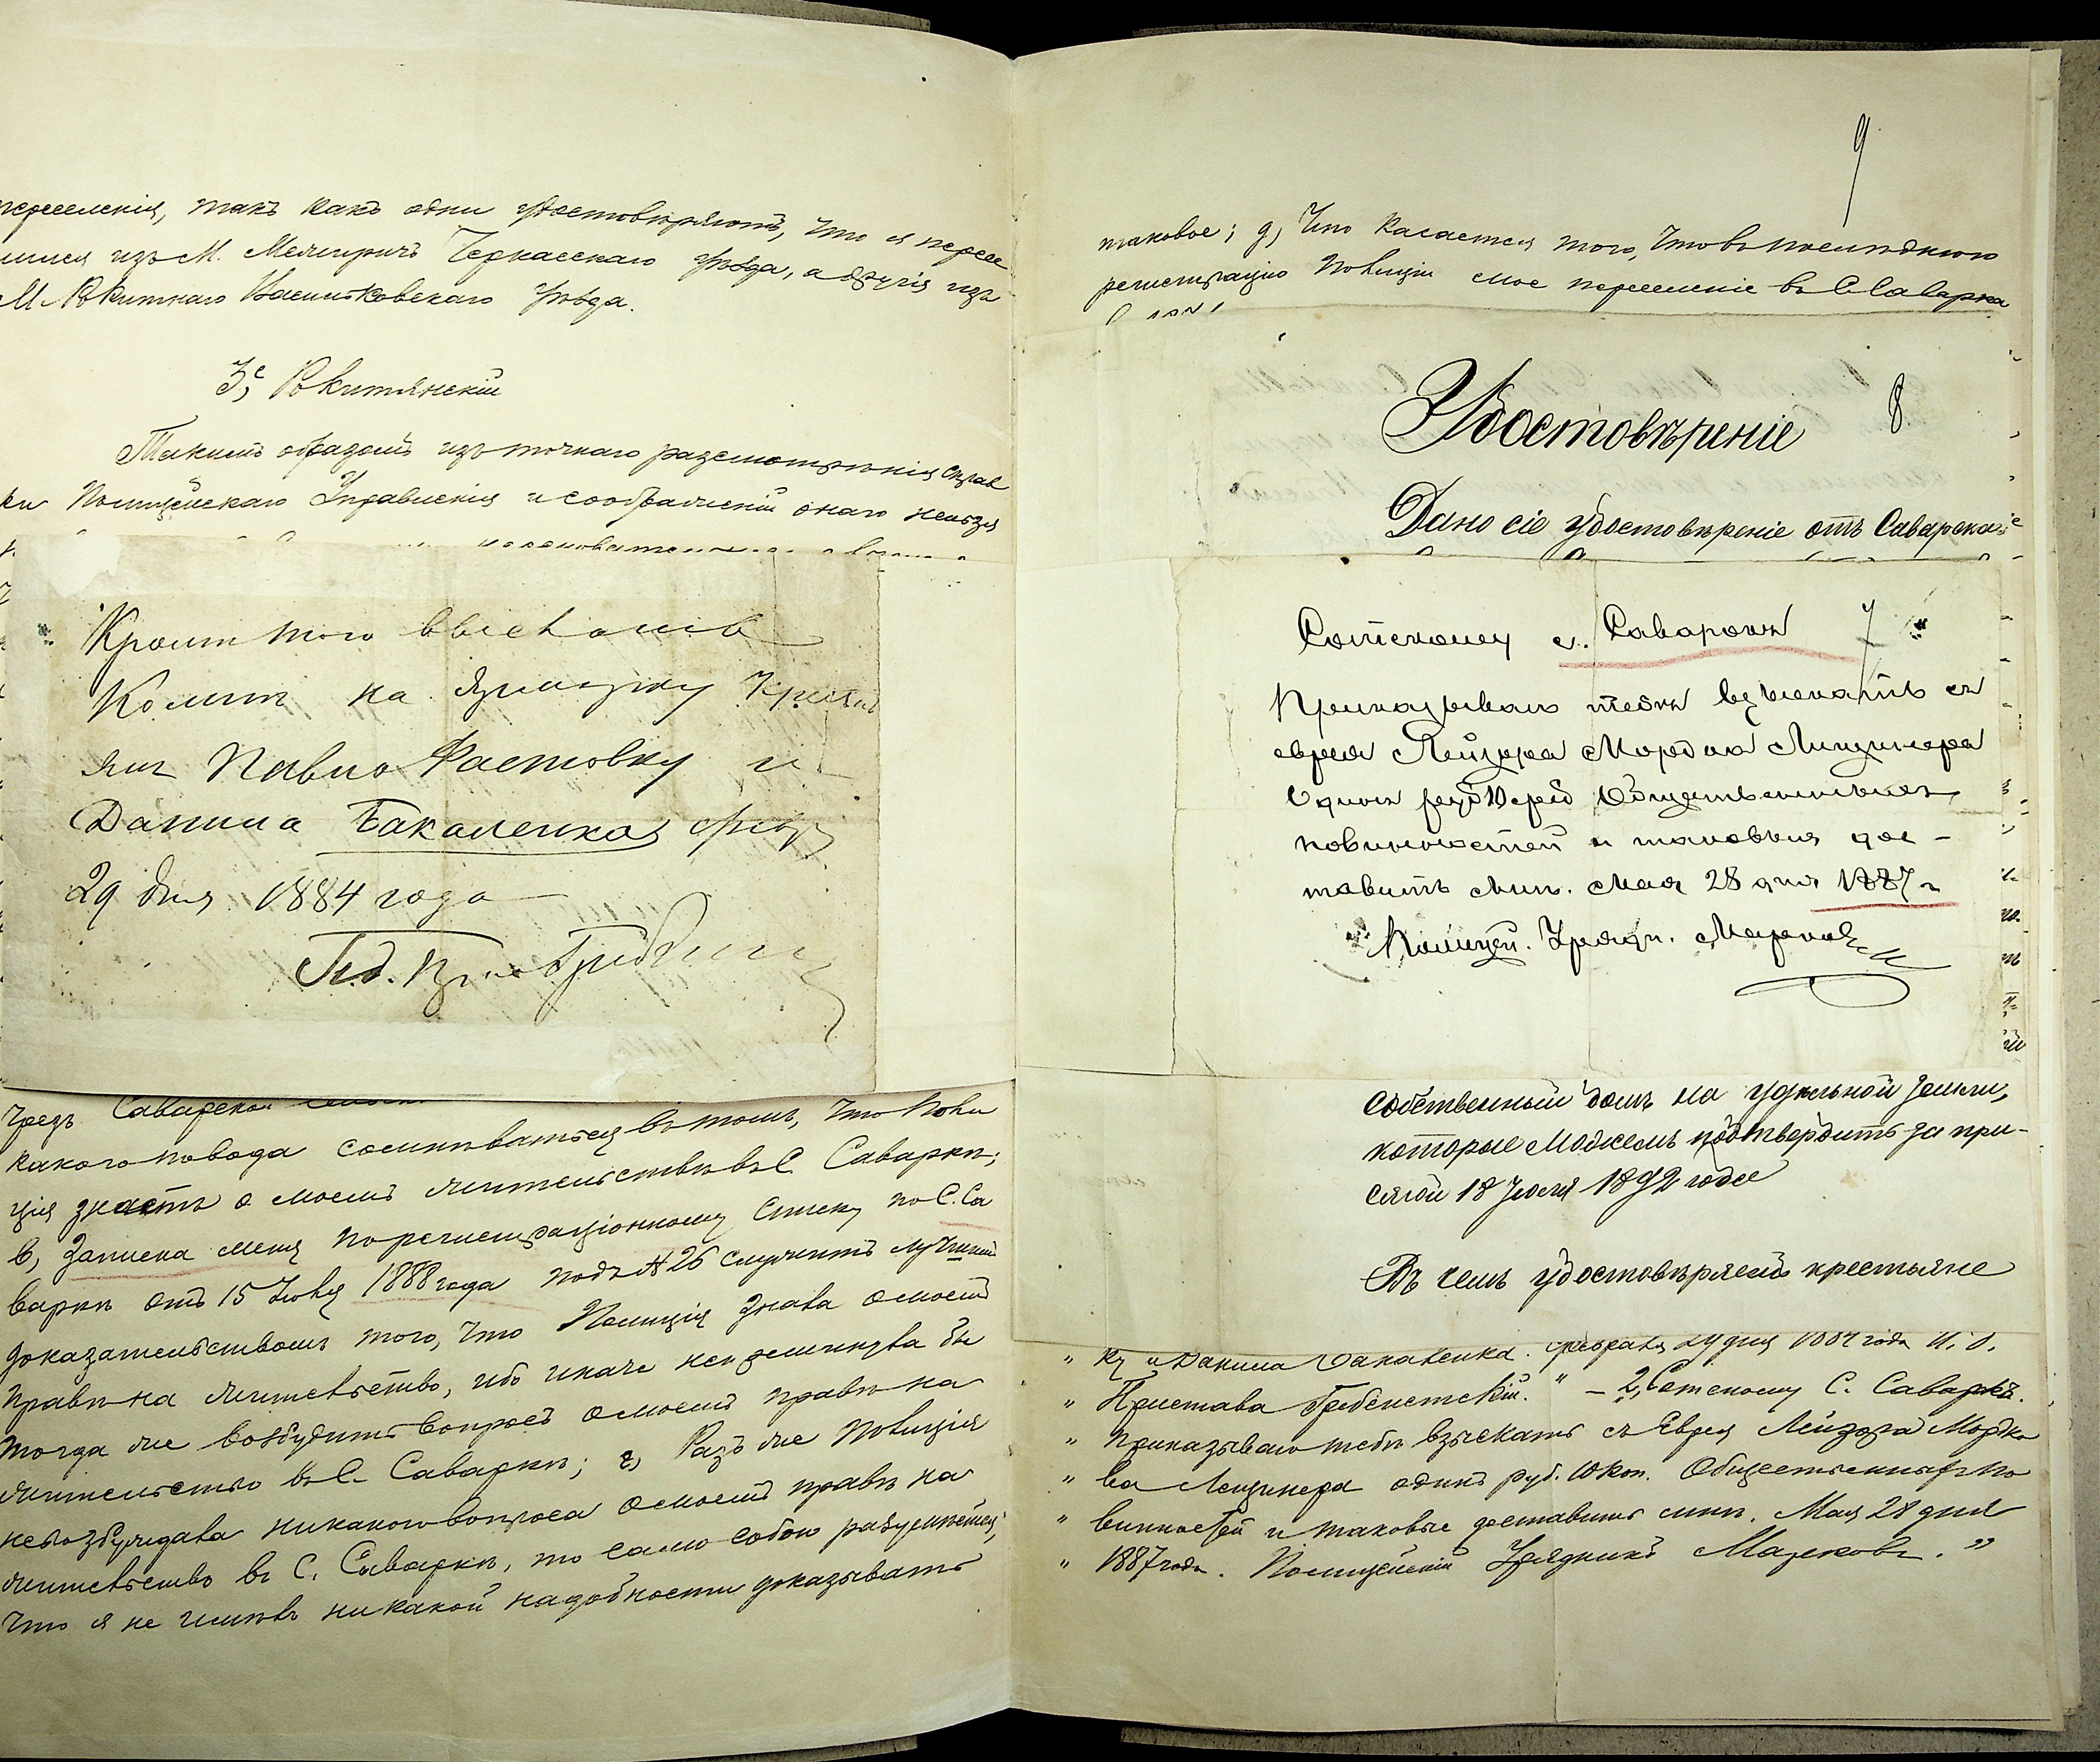 переселенія, такъ какъ одни удостовѣряютъ, что я пересе
лился изъ М. Межиричъ Черкасскаго уѣзда, а другія изъ
М. Рокитнаго Васильковскаго уѣзда.
Рокитянскій
Такимъ образомъ изъ точнаго разсмотрѣнія справ
ки Полицейскаго Управленія и соображеній онаго нельзя
Кромѣ того выслать
ко мнѣ на Ярмарку Кресть
янъ Павла Фастовку и
Данила Бакаленка февр
29 дня 1884 года
чрезъ Саварской
какого повода сомнѣваться въ томъ, что Поли
ція знаетъ о моемъ жительствѣ въ С. Саваркѣ;
в, Записка меня по регистраціонному списку по С. Са
варкѣ отъ 15 Іюля 1888 года подъ № 26 служитъ лучшимъ
доказательствомъ того, что Полиція знала о моемъ
правѣ на жительство, ибо иначе не преминула бы
тогда же возбудить вопросъ о моемъ правѣ на
жительство въ С. Саваркѣ; г, Разъ же Полиція
невозбуждала никакого вопроса о моемъ правѣ на
жительство въ С. Саваркѣ, то само собою разумѣется,
что я не имѣлъ никакой надобности доказывать
9
таковое; д, Что касается того, что въ послѣднюю
регистрацію Полиціи мое переселеніе въ С. Саварка
Удостовѣреніе
8.
Дано сіе удостовѣреніе отъ Саварскаго
Сотскому с. Саварокъ 7
Приказываю тебѣ взыскать съ
еврея Лейзора Мордка Лищинера
Одинъ руб 10 коп Общественныхъ
повинностей и таковыя дос-
тавить мнѣ. Мая 28 дня 1887 г
Полицей. Урядн. Мазекова
собственный домъ на удѣльной земли,
которые можемъ подтвердить за при-
сягой 18 Іюля 1892 года
Въ чемъ удостовѣряемъ крестьяне
" ку и Данила Бакаленка. Февраля 29 дня 1884 года И. д.
" Пристава Гребенетскій. " – 2, Сотскому С. Саваркѣ.
" Приказываю тебѣ взыскать съ Еврея Лейзора Мордко
" ва Лещинера одинъ руб. 10 коп. Общественныхъ по
" винностей и таковые доставить мнѣ. Мая 28 дня
" 1887 года. Полицейскій Урядникъ Мазековъ. "